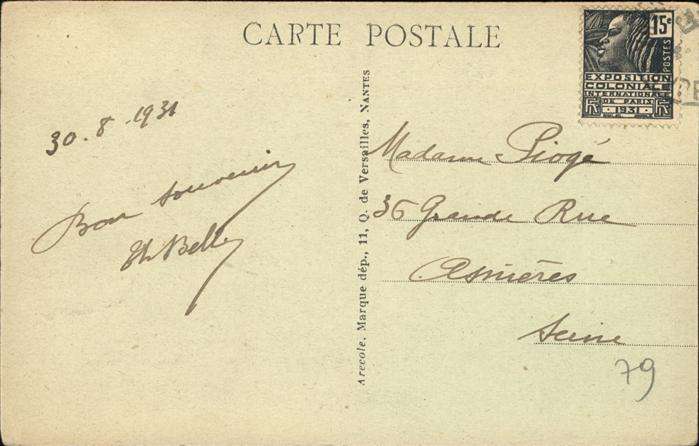 CARTE POSTALE
15c
POSTES
EXPOSITION
COLONIALE
INTERNATIONALE
DE PARIS
1931
30.8.1931
Bon souvenir
Th Belle
Arecole, Marque dép., 11, Q. de Versailles, NANTES
Madame Piogé
36 Grande Rue
Asnières
Seine
79